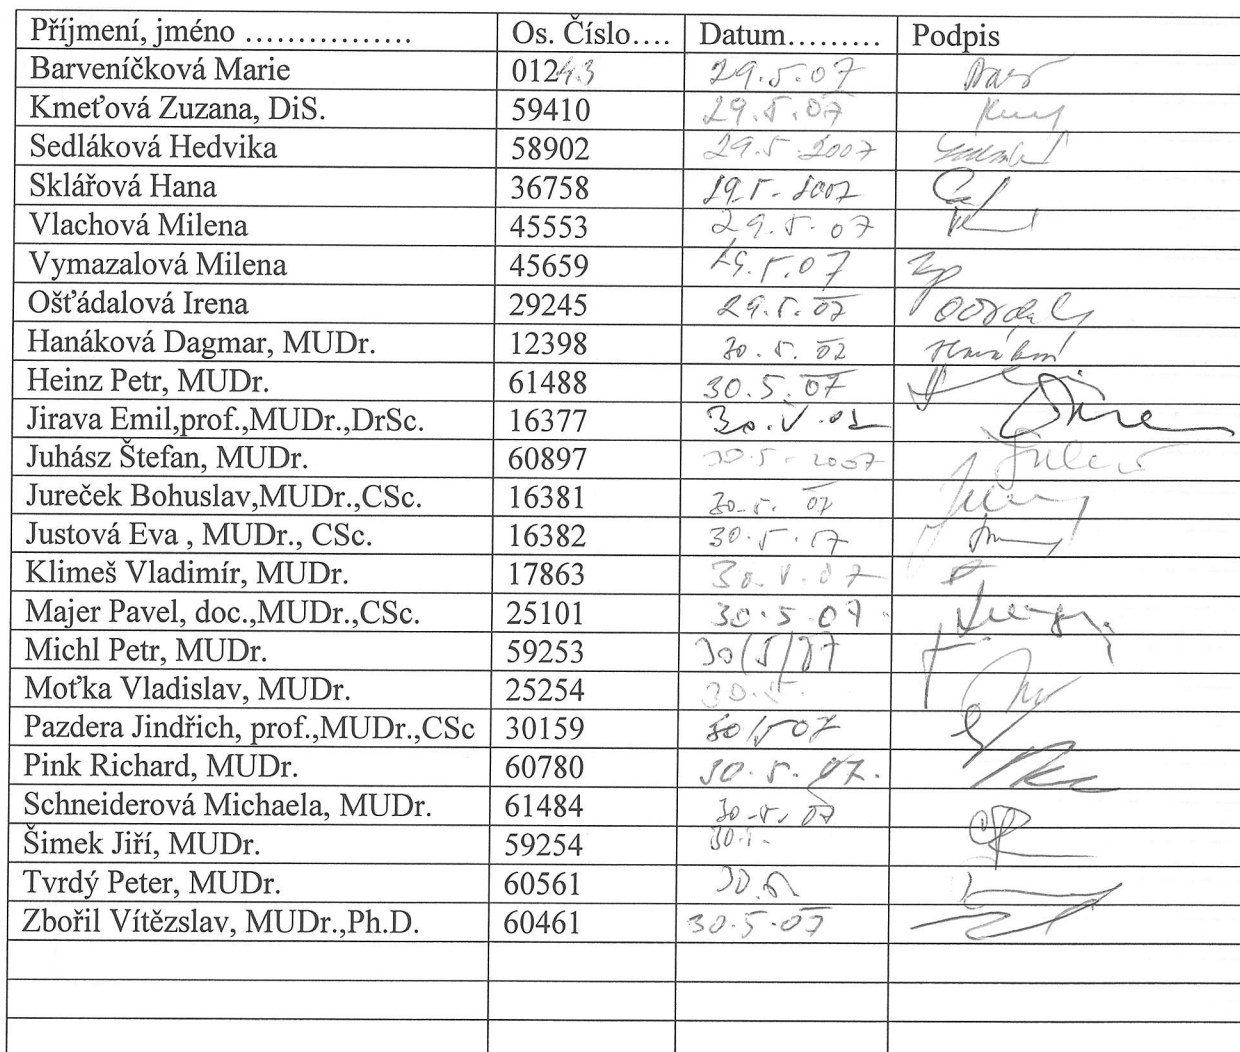 Příjmení, jméno ……………. Os. Číslo…. Datum……… Podpis
Barveníčková Marie 01243 29.5.07
Kmeťová Zuzana, DiS. 59410 29.5.07
Sedláková Hedvika 58902 29.5.2007
Sklářová Hana 36758 29.5.2007
Vlachová Milena 45553 29.5.07
Vymazalová Milena 45659 29.5.07
Ošťádalová Irena 29245 29.5.07
Hanáková Dagmar, MUDr. 12398 30.5.07
Heinz Petr, MUDr. 61488 30.5.07
Jirava Emil,prof.,MUDr.,DrSc. 16377 30.V.07
Juhász Štefan, MUDr. 60897 30.5.2007
Jureček Bohuslav,MUDr.,CSc. 16381 30.5.07
Justová Eva , MUDr., CSc. 16382 30.5.07
Klimeš Vladimír, MUDr. 17863 30.V.07
Majer Pavel, doc.,MUDr.,CSc. 25101 30.5.07
Michl Petr, MUDr. 59253 30/5/07
Moťka Vladislav, MUDr. 25254 30.5.
Pazdera Jindřich, prof.,MUDr.,CSc 30159 30/5 07
Pink Richard, MUDr. 60780 30.5.07.
Schneiderová Michaela, MUDr. 61484 30.5.07
Šimek Jiří, MUDr. 59254 30.5.
Tvrdý Peter, MUDr. 60561 30.5.
Zbořil Vítězslav, MUDr.,Ph.D. 60461 30.5.07